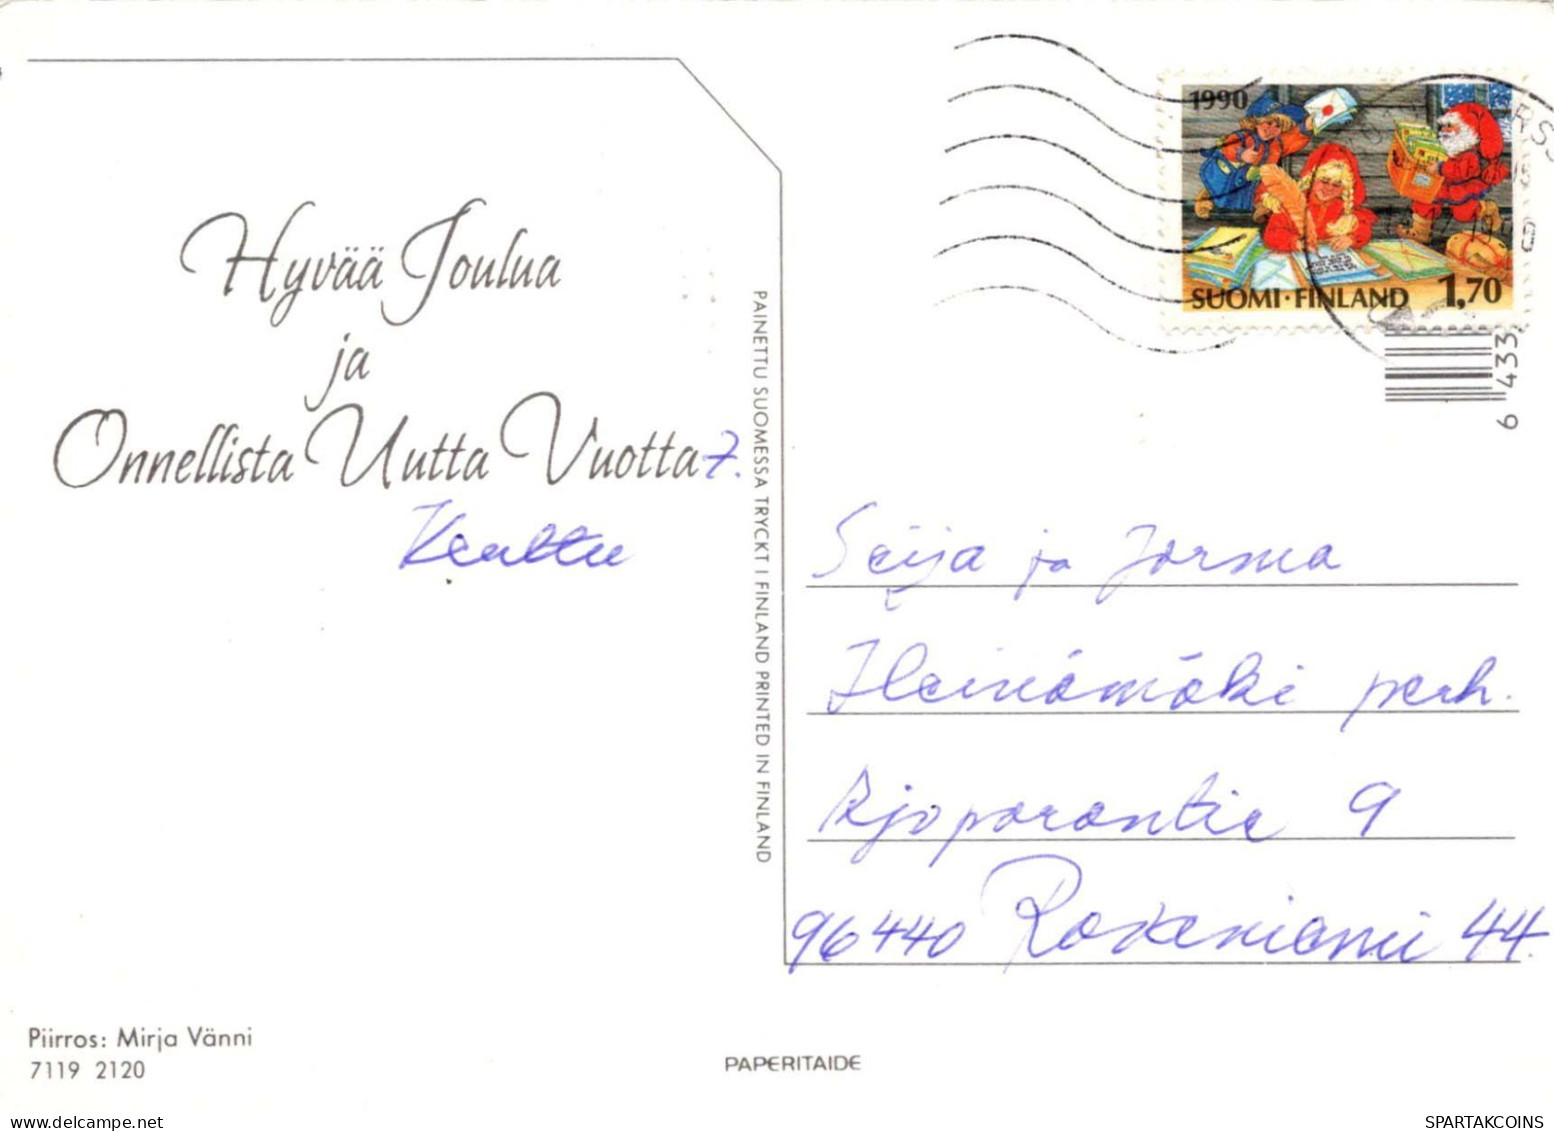 Hyvää Joulua
ja
Onnellista Uutta Vuotta
T.
Kerttu
PAINETTU SUOMESSA TRYCKT I FINLAND PRINTED IN FINLAND
1990
SUOMI·FINLAND 1,70
6 433
Seija ja Jorma
Heinämäki perh.
Ajoporontie 9
96440 Rovaniemi 44
Piirros: Mirja Vänni
7119 2120
PAPERITAIDE
delcampe.net
SPARTAKCOINS